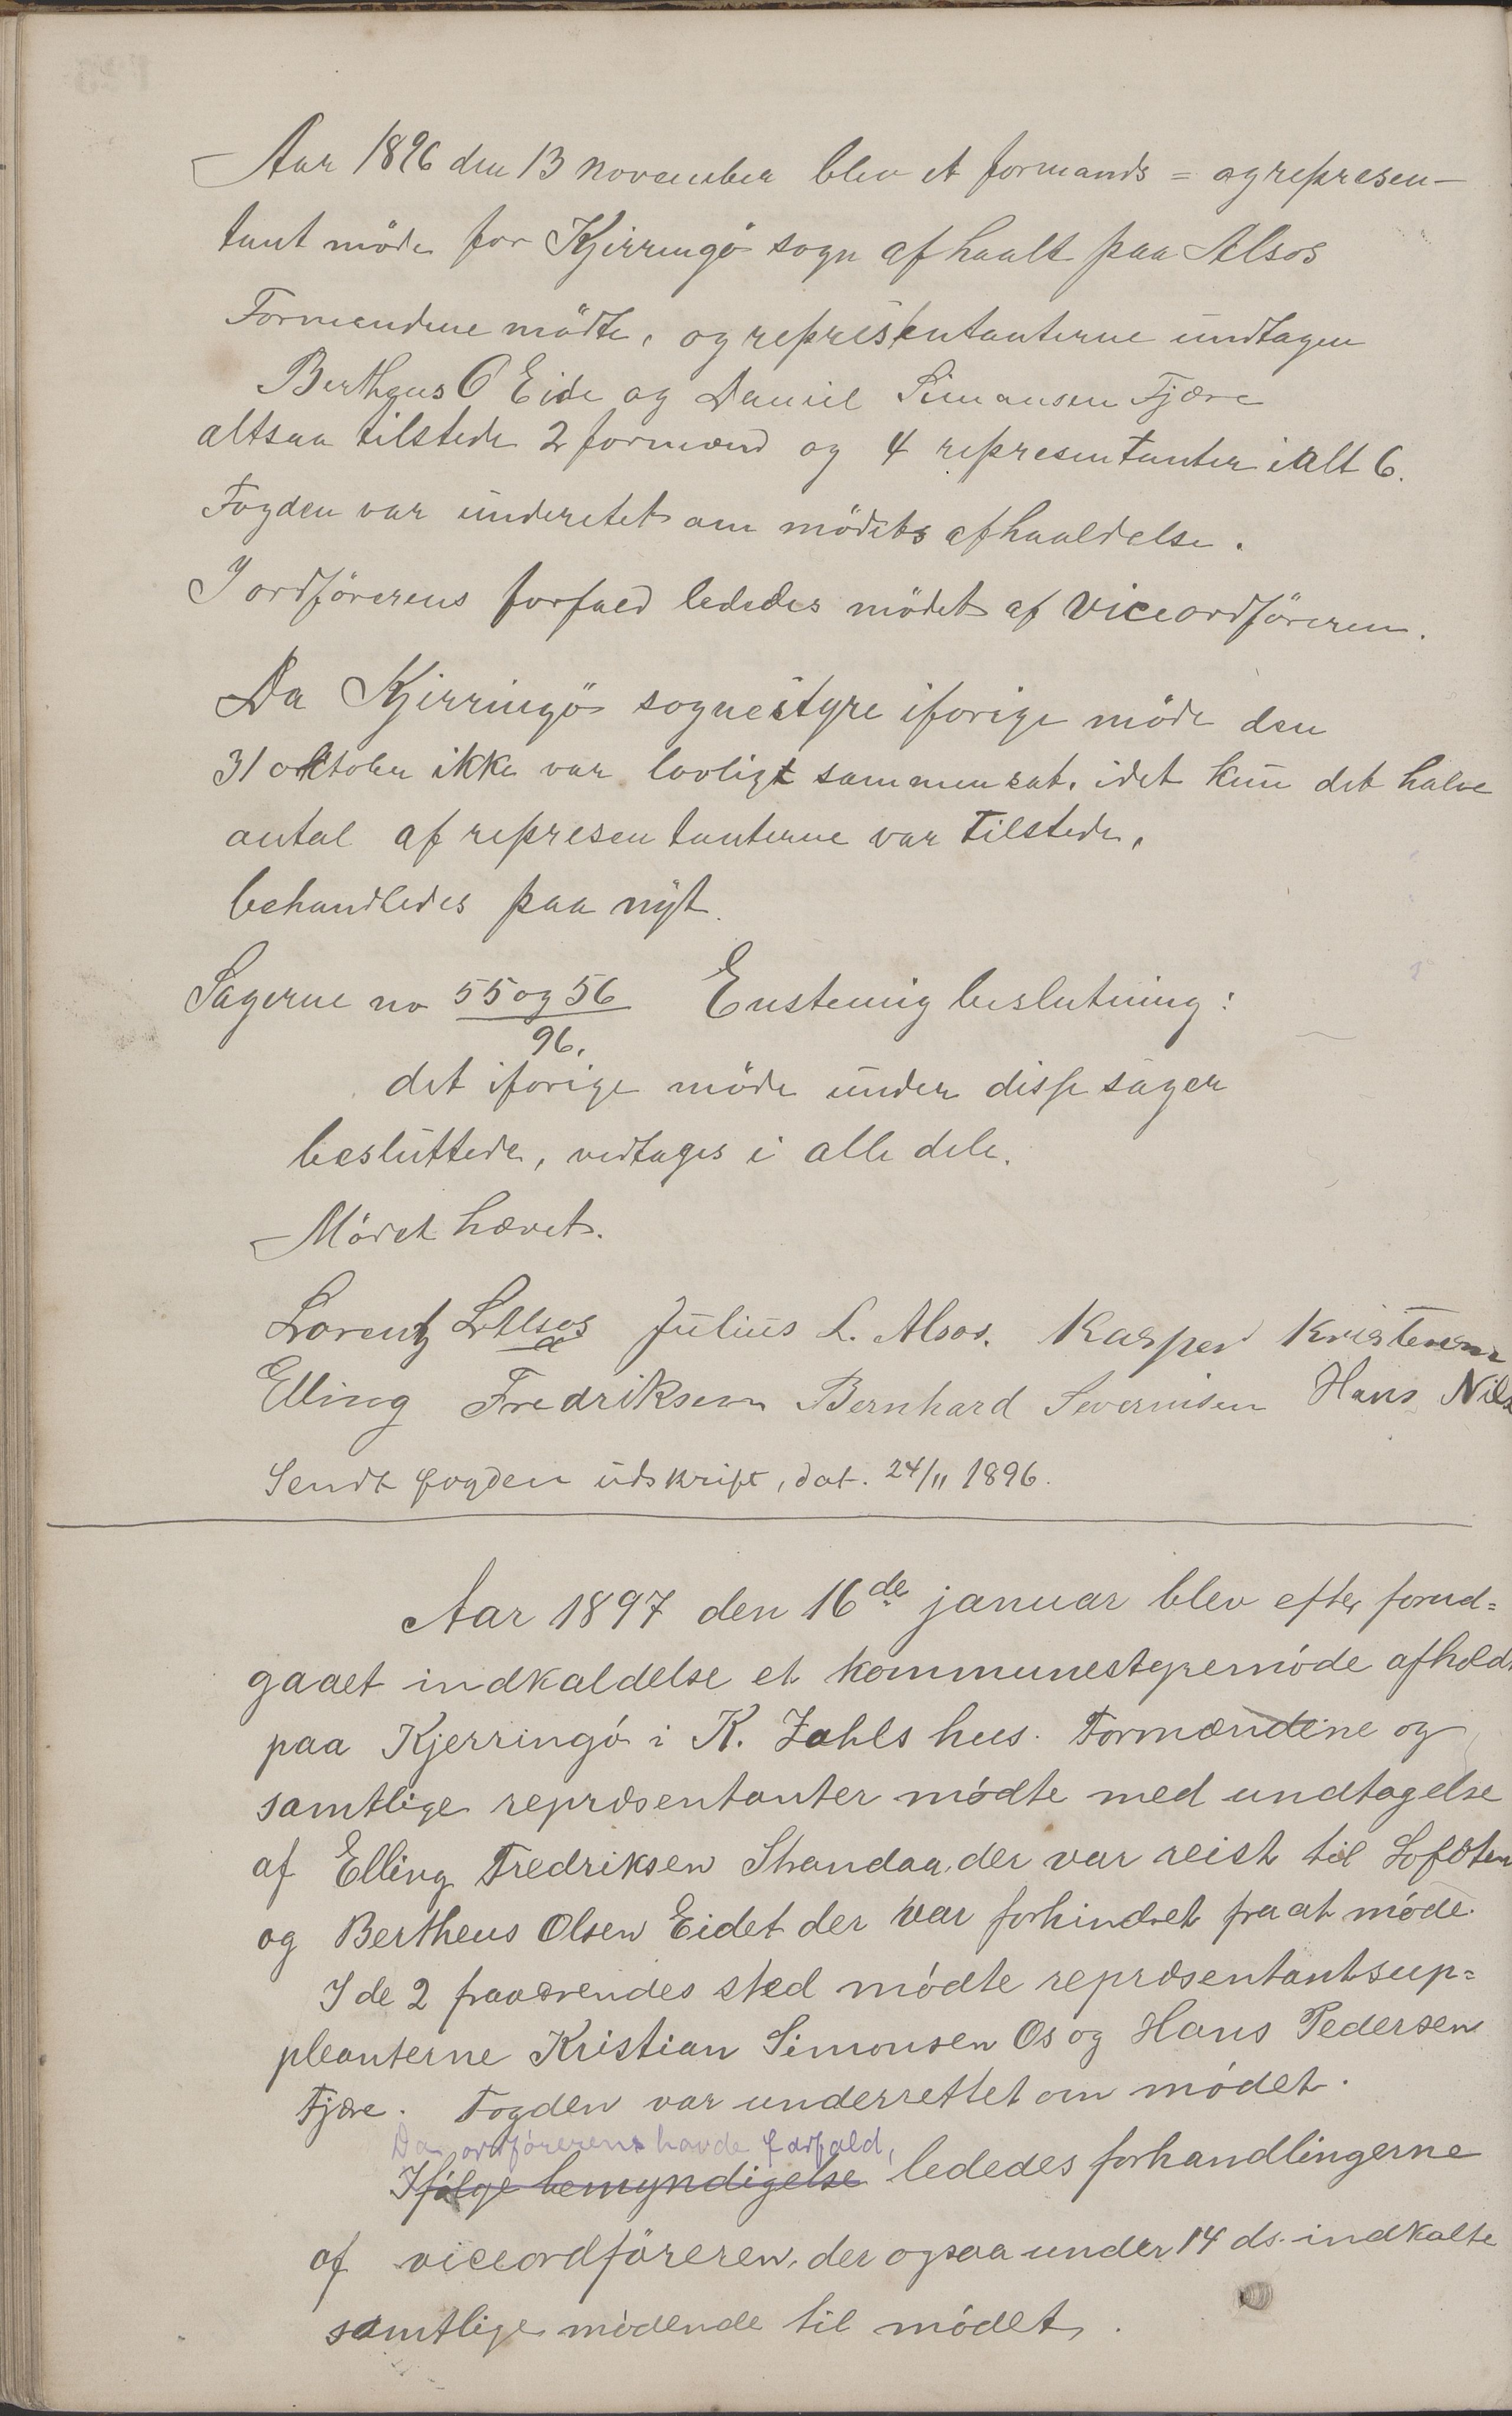 Aar 1896 den 13 november blev et formands = og represen-
tant möde for Kjirringö sogn afhaalt paa Alsos
Formendene mödte, og representanterne undtagen
Bertheus O Eide og Daniel Simonsen Fjære
altsaa tilstede 2 formænd og 4 representanter i alt 6.
Fogden var underetet om mödets afhaaldelse.
I ordförerens forfald lededes mödet af viceordföreren.
Da Kjirringö sognestyre iforige möde den
31 oktober ikke var lovligt sammensat. idet kun det halve
antal af representanterne var tilstede,
behandledes paa nyt.
Sagerne no 55 og 56 Enstemig beslutning:
96.
det iforige möde under disse sager
besluttede, vedtages i alle dele.
Mödet hævet.
Lorentz L Alsos Julius L. Alsos. Kasper Kristensen
Elling Fredriksen Bernhard Severinsen Hans Nils
Sendt fogden udskrift, dat. 24/11 1896.
Aar 1897 den 16de januar blev efter forud=
gaaet indkaldelse et kommunestyremöde afholdt
paa Kjerringö i K. Zahls hus. Formændene og
samtlige repræsentanter mödte med undtagelse
af Elling Fredriksen Strandaa, der var reist til Lofoten
og Bertheus Olsen Eidet der var forhindret fra at möde.
I de 2 fraværendes sted mödte repræsentantsup=
pleanterne Kristian Simonsen Os og Hans Pedersen
Fjære. Fogden var underrettet om mödet.
Da ordförerens havde forfald,
Ifölge bemyndigelse lededes forhandlingerne
af viceordföreren, der ogsaa under 14 ds. indkalte
samtlige mödende til mödet.